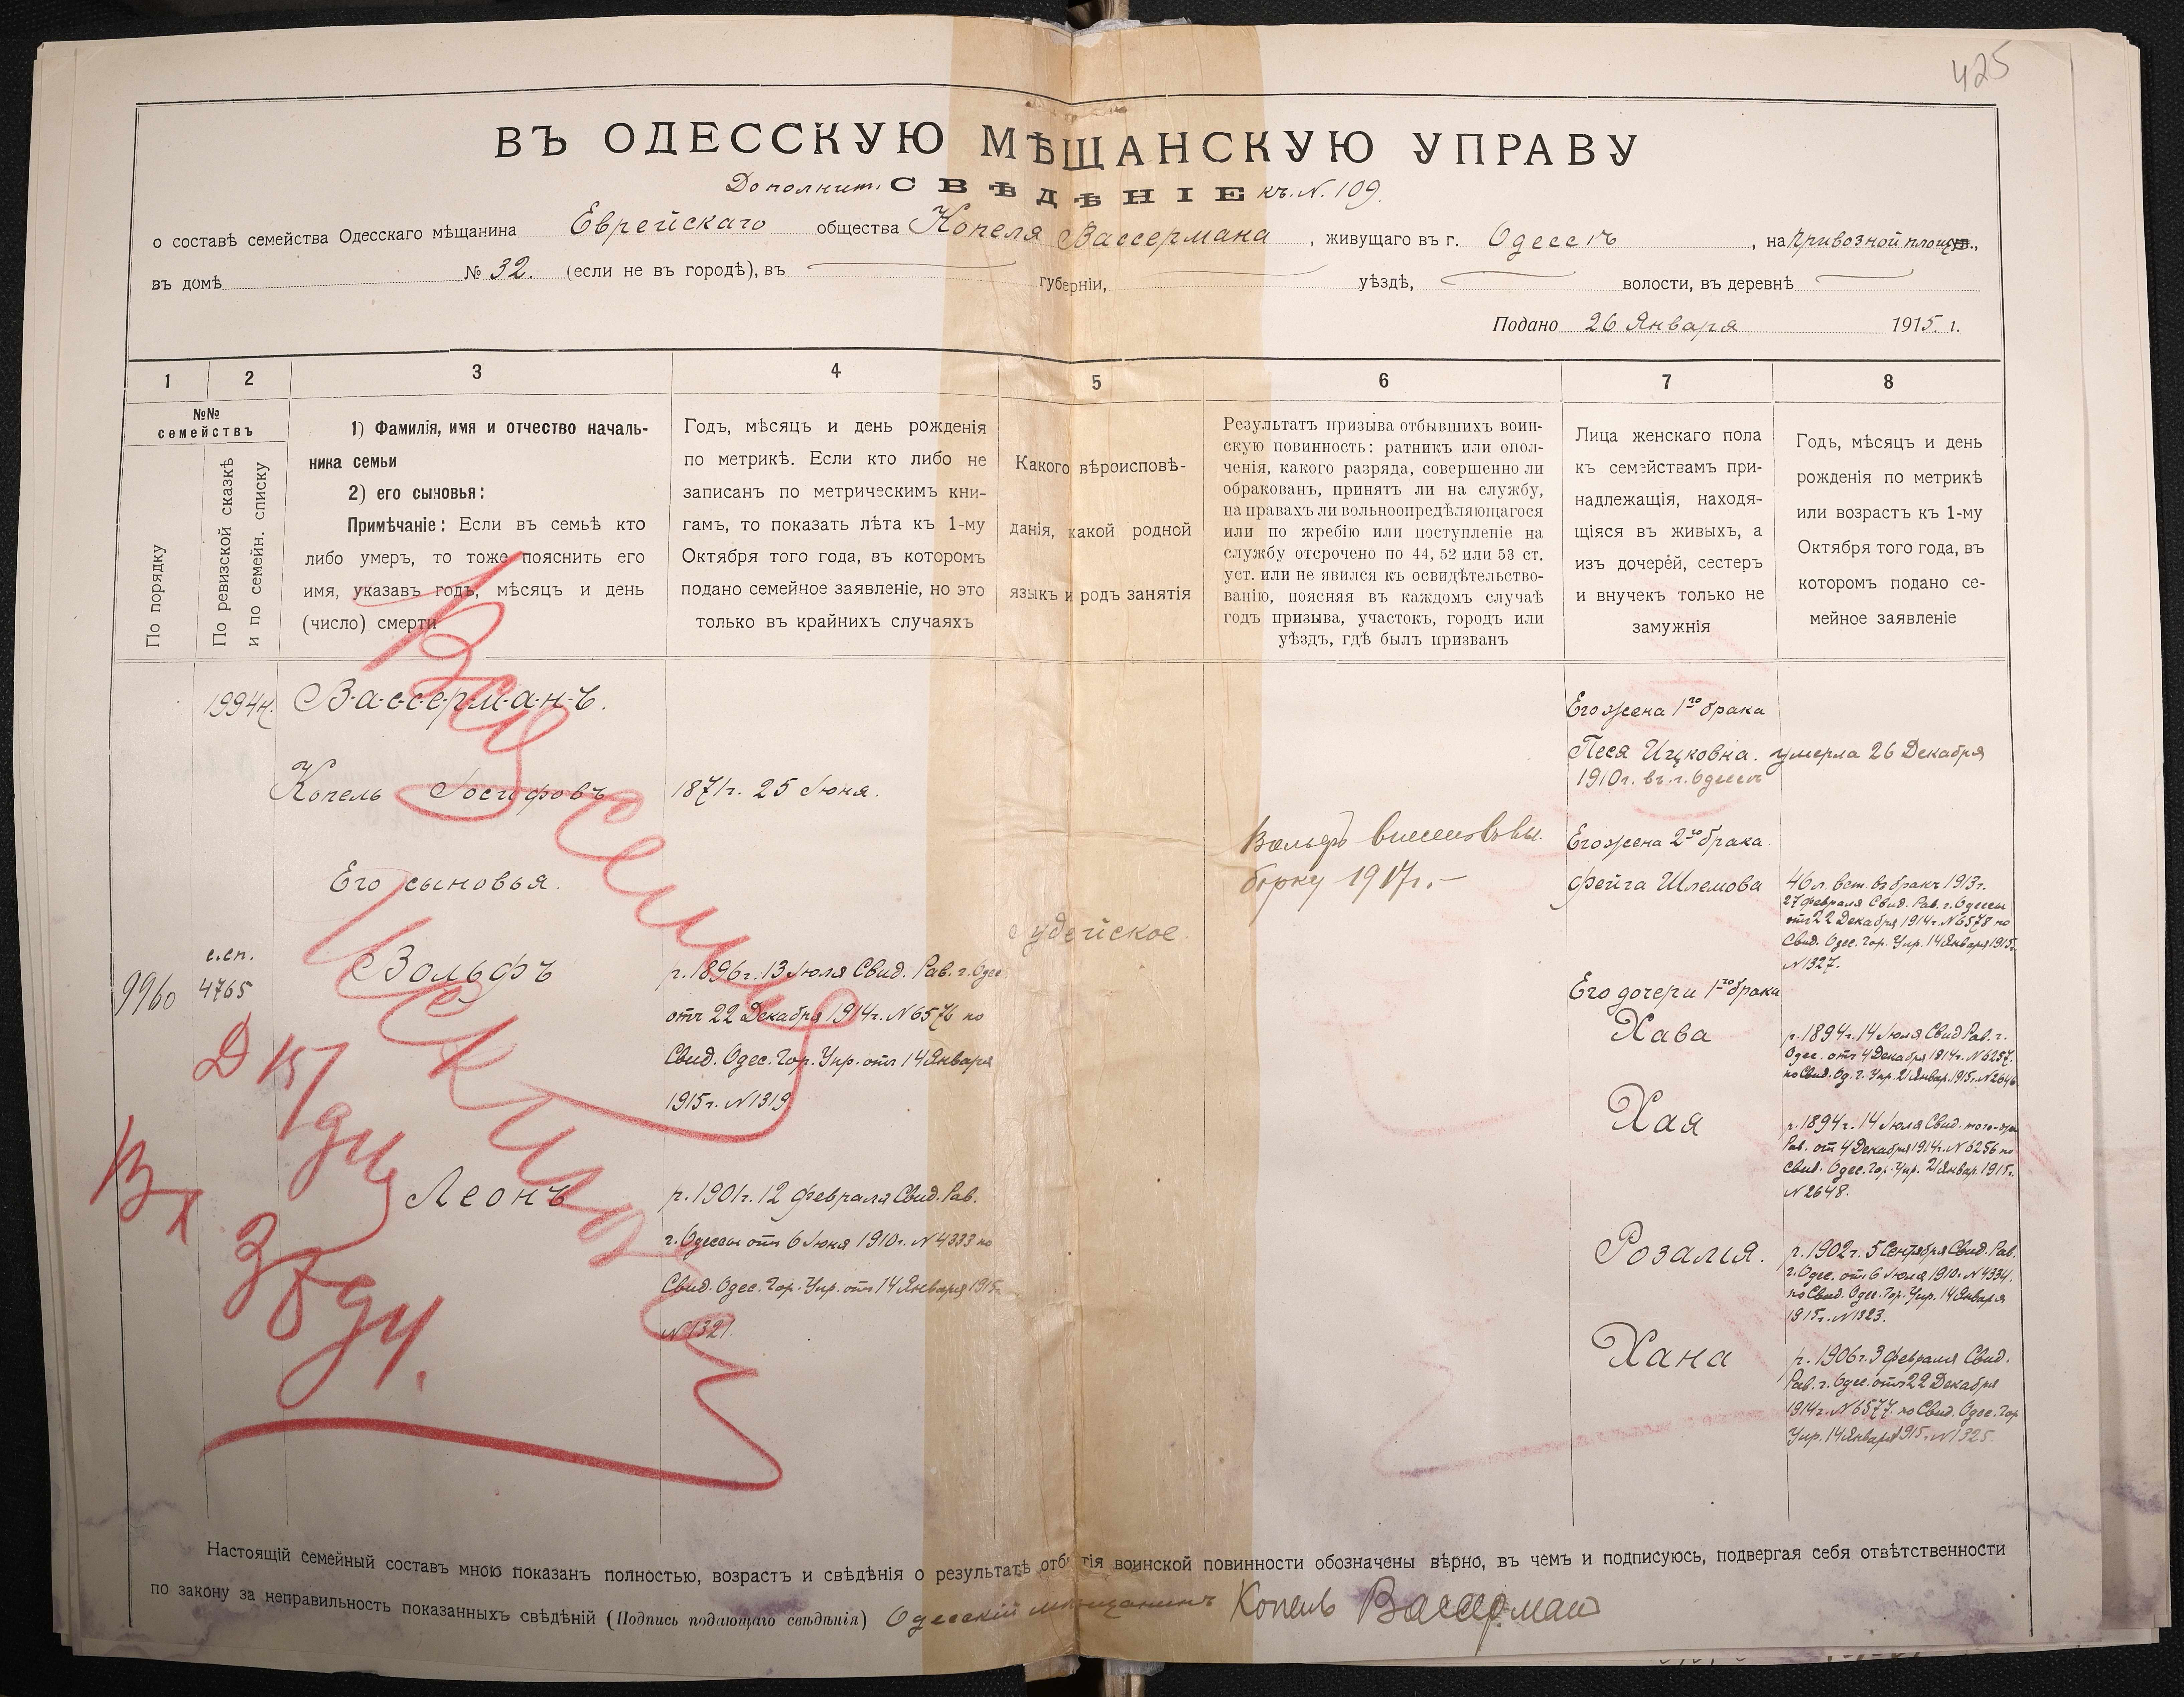 425
ВЪ ОДЕССКУЮ МѢЩАНСКУЮ УПРАВУ
Дополнит. СВѢДѢНІЕ къ N. 109.
о составѣ семейства Одесскаго мѣщанина Еврейскаго общества Копеля Вассермана, живущаго въ г. Одессѣ, на Привозной площ.,
въ домѣ № 32. (если не въ городѣ), въ губерніи, уѣздѣ, волости, въ деревнѣ
Подано 26 Января 1915 г.
1 2 3 4 5 6 7 8
№№
семействъ
По порядку
По ревизской сказкѣ
и по семейн. списку
1) Фамилія, имя и отчество началь-
ника семьи
2) его сыновья:
Примѣчаніе: Если въ семьѣ кто
либо умеръ, то тоже пояснить его
имя, указавъ годъ, мѣсяцъ и день
(число) смерти
Годъ, мѣсяцъ и день рожденія
по метрикѣ. Если кто либо не
записанъ по метрическимъ кни-
гамъ, то показать лѣта къ 1-му
Октября того года, въ которомъ
подано семейное заявленіе, но это
только въ крайнихъ случаяхъ
Какого вѣроисповѣ-
данія, какой родной
языкъ и родъ занятія
Результатъ призыва отбывшихъ воин-
скую повинность: ратникъ или опол-
ченія, какого разряда, совершенно ли
обракованъ, принятъ ли на службу,
на правахъ ли вольноопредѣляющагося
или по жребію или поступленіе на
службу отсрочено по 44, 52 или 53 ст.
уст. или не явился къ освидѣтельство-
ванію, поясняя въ каждомъ случаѣ
годъ призыва, участокъ, городъ или
уѣздъ, гдѣ былъ призванъ
Лица женскаго пола
къ семействамъ при-
надлежащія, находя-
щіяся въ живыхъ, а
изъ дочерей, сестеръ
и внучекъ только не
замужнія
Годъ, мѣсяцъ и день
рожденія по метрикѣ
или возрастъ къ 1-му
Октября того года, въ
которомъ подано се-
мейное заявленіе
1994
В-а-с-с-е-р-м-а-н-ъ.
Копель Іосифовъ
1871г. 25 Іюня.
Его сыновья.
с.сп.
9960 4765
Вольфъ
р. 1896г. 13 Іюля Свид. Рав. г. Одес
отъ 22 Декабря 1914г. N6576 по
Свид. Одес. Гор. Упр. отъ 14 Января
1915г. N1319
Леонъ
р. 1901г. 12 Февраля Свид. Рав.
г. Одессы отъ 6 Іюня 1910г. N4333 по
Свид. Одес. Гор. Упр. отъ 14 Января 1915г.
N1321.
Іудейское.
Вольфъ
1917г.-
Его жена 1го брака
Песя Ицковна. умерла 26 Декабря
1910г. въ г. Одессѣ
Его жена 2го брака.
Фейга Шлемова
46 л. вст. въ бракъ 1913г.
27 Февраля Свид. Рав. г. Одессы
отъ 22 Декабря 1914г. N6578 по
Свид. Одес. Гор. Упр. 14 Января 1915г.
N1327.
Его дочери 1го брака
Хава
р. 1894г. 14 Іюля Свид Рав. г.
Одес. отъ 4 Декабря 1914г. N6257.
по Свид. Од. Г. Упр. 21 Январ. 1915г. N2646
Хая
р. 1894г. 14 Іюля Свид. того-же
Рав. отъ 4 Декабря 1914г. N6256 по
Свид. Одес. Гор. Упр. 21 Январ. 1915г.
N2648.
Розалія.
р. 1902г. 5 Сентября Свид. Рав.
г. Одес. отъ 6 Іюля 1910г. N4334.
по Свид. Одес. Гор. Упр. 14 Января
1915г. N1323.
Хана
р. 1906г. 3 Февраля Свид.
Рав. г. Одес. отъ 22 Декабря
1914г. N6577. по Свид. Одес. Гор
Упр. 14 Января 1915г. N1325.
Вся семья
Исключ
Настоящій семейный составъ мною показанъ полностью, возрастъ и свѣдѣнія о результатѣ отбытія воинской повинности обозначены вѣрно, въ чемъ и подписуюсь, подвергая себя отвѣтственности
по закону за неправильность показанныхъ свѣдѣній (Подпись подающаго свѣдѣнія) Одесскій мѣщанинъ Копель Вассерман